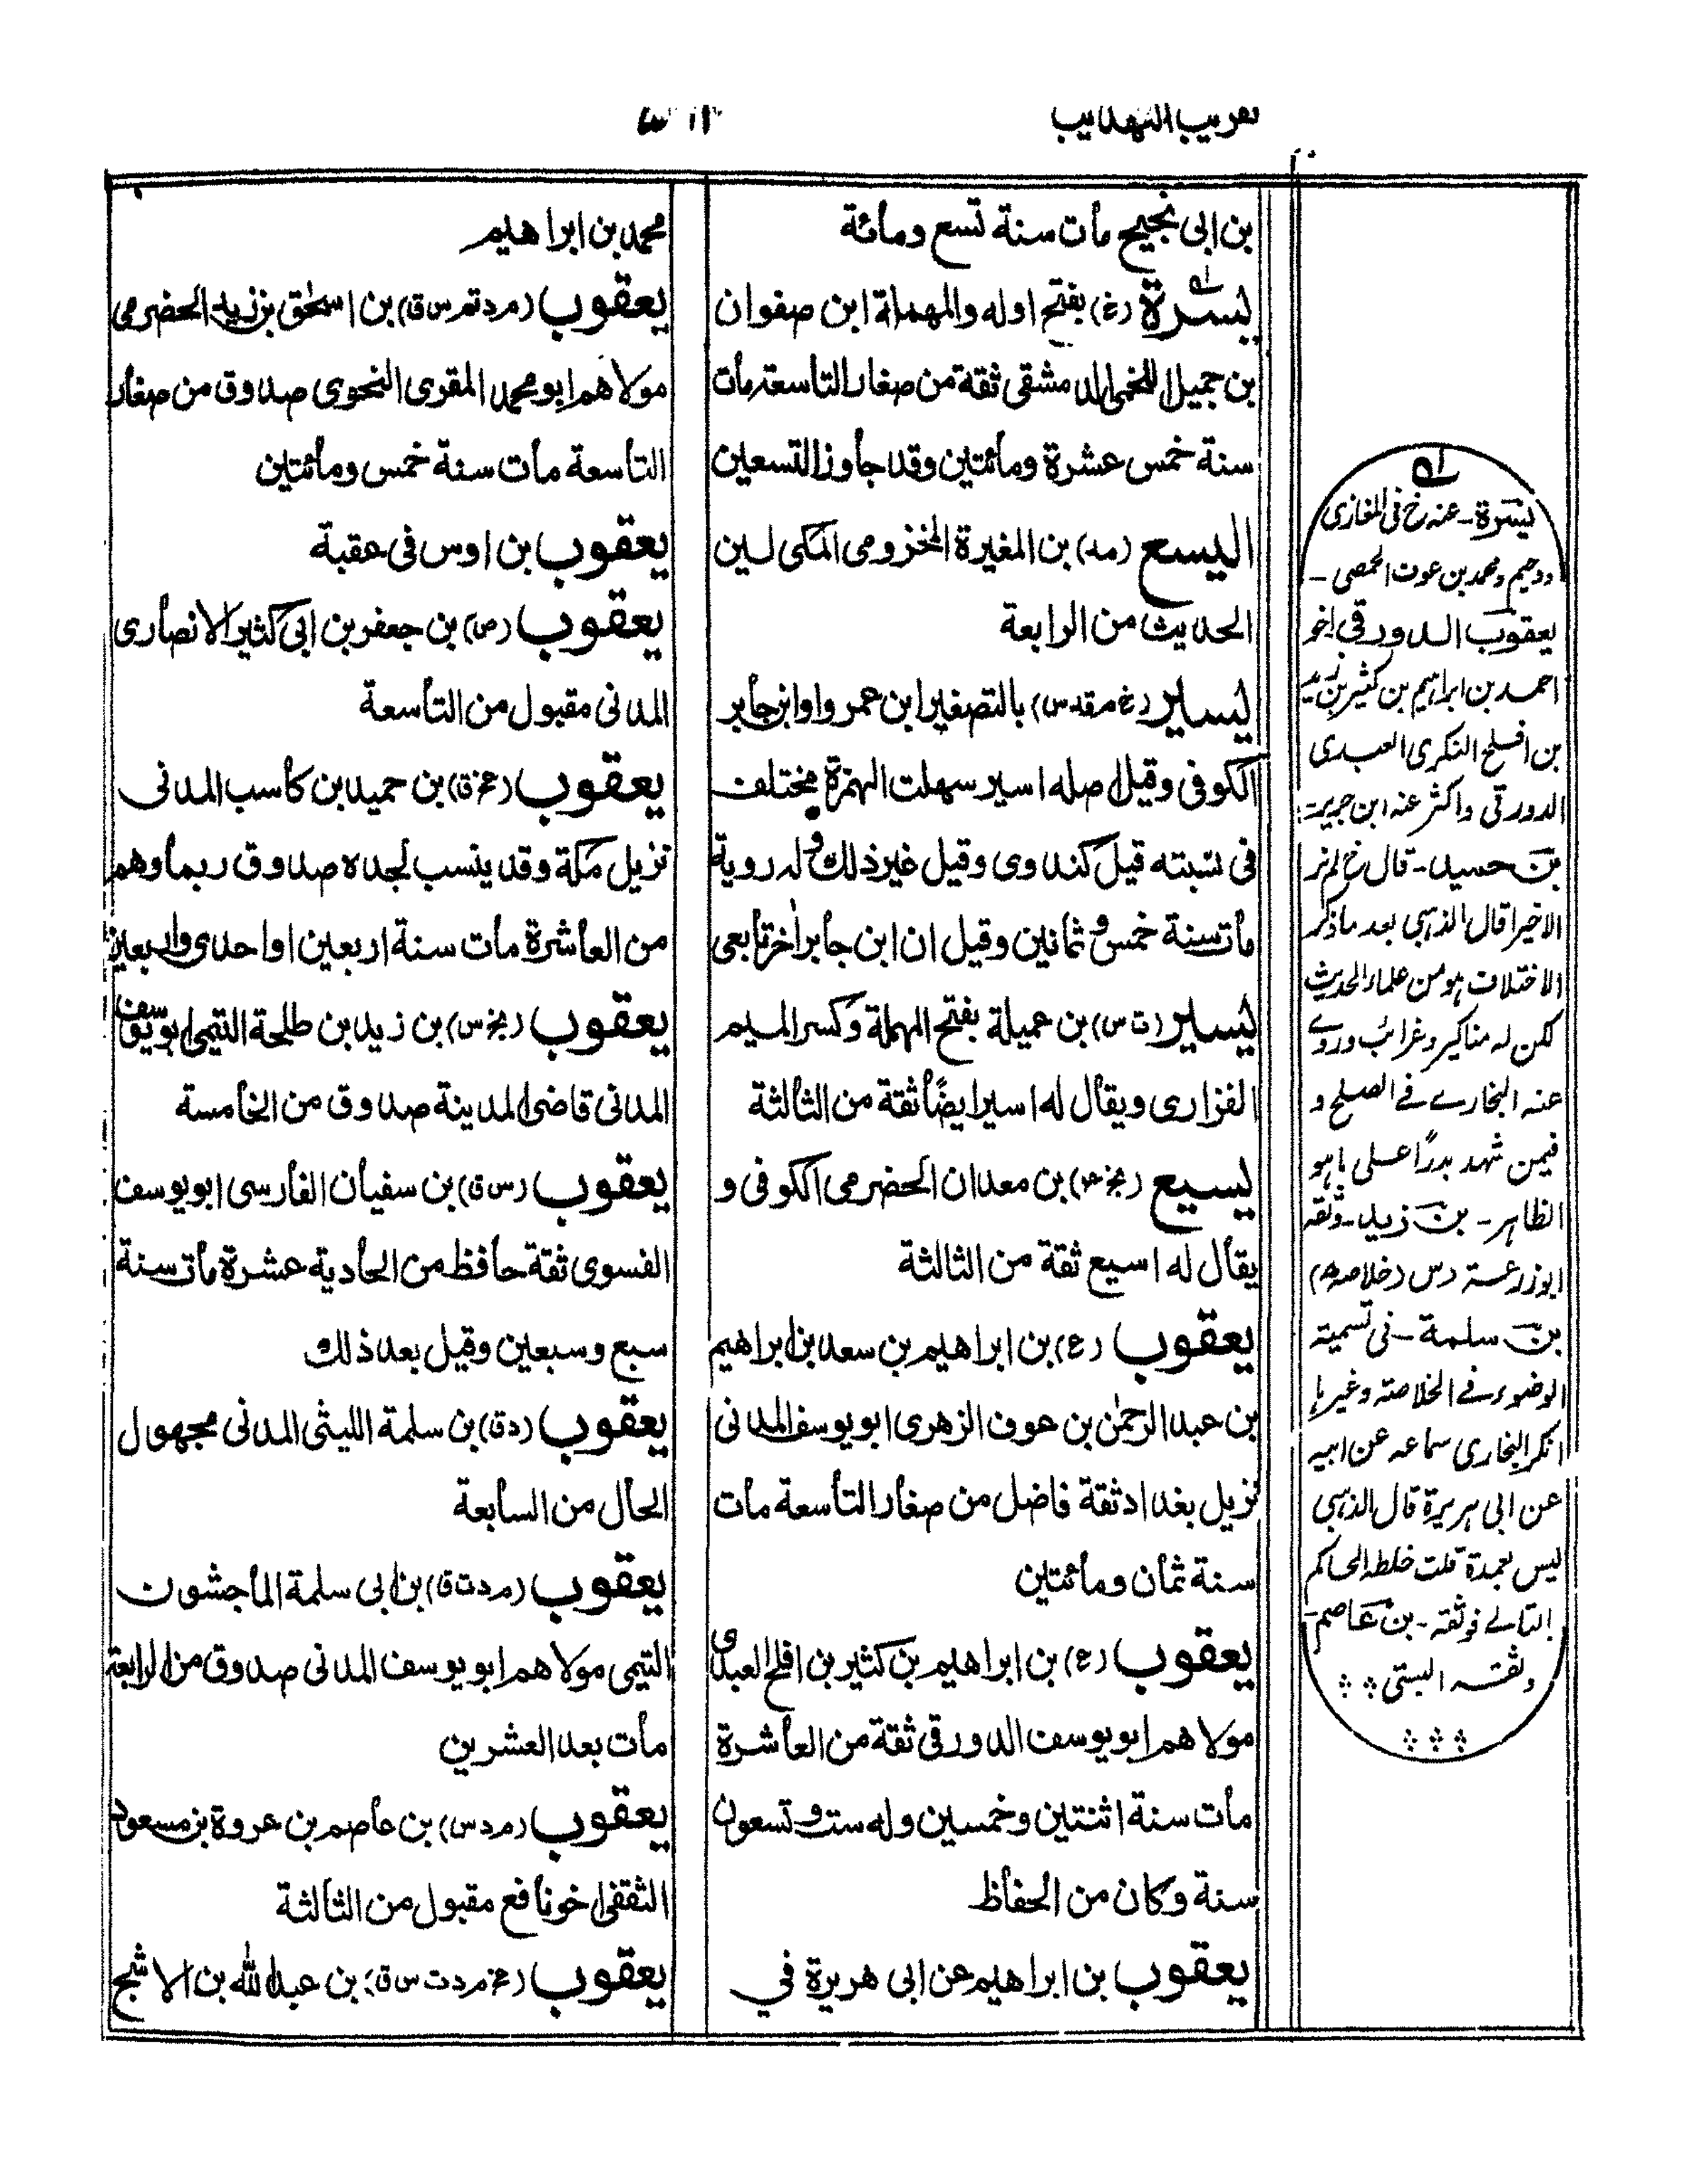 تقريب التهذيب
بن ابى نجيح مات سنة تسع ومائة
يسرة (خ) بفتح اوله والمهملة ابن صفوان
بن جميل اللخمى الدمشقى ثقة من صغار التاسعة مات
سنة خمس عشرة ومائتين وقد جاوز التسعين
اليسع (مد) بن المغيرة المخزومى المكى لين
الحديث من الرابعة
يسير (خ م قد س) بالتصغير ابن عمرو او ابن جابر
الكوفى وقيل اصله اسير سهلت الهمزة مختلف
فى نسبته قيل كندى وقيل غير ذلك وله روية
مات سنة خمس وثمانين وقيل ان ابن جابر اخر تابعى
يسير (ت س) بن عميلة بفتح المهملة وكسر الميم
الفزارى ويقال له اسير ايضًا ثقة من الثالثة
يسيع (بخ عه) بن معدان الحضرمى الكوفى و
يقال له اسيع ثقة من الثالثة
يعقوب (ع) بن ابراهيم بن سعد بن ابراهيم
بن عبد الرحمٰن بن عوف الزهرى ابو يوسف المدنى
نزيل بغداد ثقة فاضل من صغار التاسعة مات
سنة ثمان ومائتين
يعقوب (ع) بن ابراهيم بن كثير بن افلح العبدى
مولاهم ابو يوسف الدورقى ثقة من العاشرة
مات سنة اثنتين وخمسين وله ست وتسعون
سنة وكان من الحفاظ
يعقوب بن ابراهيم عن ابى هريرة في
محمد بن ابراهيم
يعقوب (م د تم س ق) بن اسحٰق بن زيد الحضرمى
مولاهم ابو محمد المقرى النحوى صدوق من صغار
التاسعة مات سنة خمس ومائتين
يعقوب بن اوس فى عقبة
يعقوب (ص) بن جعفر بن ابى كثير الانصارى
المدنى مقبول من التاسعة
يعقوب (عخ ق) بن حميد بن كاسب المدنى
نزيل مكة وقد ينسب لجده صدوق ربما وهم
من العاشرة مات سنة اربعين او احدى واربعين
يعقوب (بخ س) بن زيد بن طلحة التيمى ابو يوسف
المدنى قاضى المدينة صدوق من الخامسة
يعقوب (س ق) بن سفيان الفارسى ابو يوسف
الفسوى ثقة حافظ من الحادية عشرة مات سنة
سبع وسبعين وقيل بعد ذلك
يعقوب (د ق) بن سلمة الليثى المدنى مجهول
الحال من السابعة
يعقوب (م د ت ق) بن ابى سلمة الماجشون
التيمى مولاهم ابو يوسف المدنى صدوق من الرابعة
مات بعد العشرين
يعقوب (م د س) بن عاصم بن عروة بن مسعود
الثقفى اخو نافع مقبول من الثالثة
يعقوب (عخ م د ت س ق) بن عبد الله بن الاشج
يسرة - عنه خ فى المغازى
ودحيم ومحمد بن عوف الحمصى -
يعقوب الدورقى اخو
احمد بن ابراہيم بن كثير بن زيد
بن افلح النكرى العبدى
الدورقى واكثر عنه ابن جرير -
بن حميد - قال خ لم نر
الاخيرا قال الذہبى بعد ما ذكر
الاختلاف ہو من علماء الحديث
لكن له مناكير وغرائب وروے
عنہ البخارے فے الصلح و
فيمن شہد بدرًا على ما ہو
الظاہر - بن زيد - وثقہ
ابو زرعة و س (خلاصه)
بن سلمة - فى تسمية
الوضوء فے الخلاصة وغيرہا
انكر البخارى سماعہ عن ابيہ
عن ابى ہريرة قال الذہبى
ليس بعمدة قلت خلط الحاكم
فوثقہ - بن عاصم -
وثقہ البستى